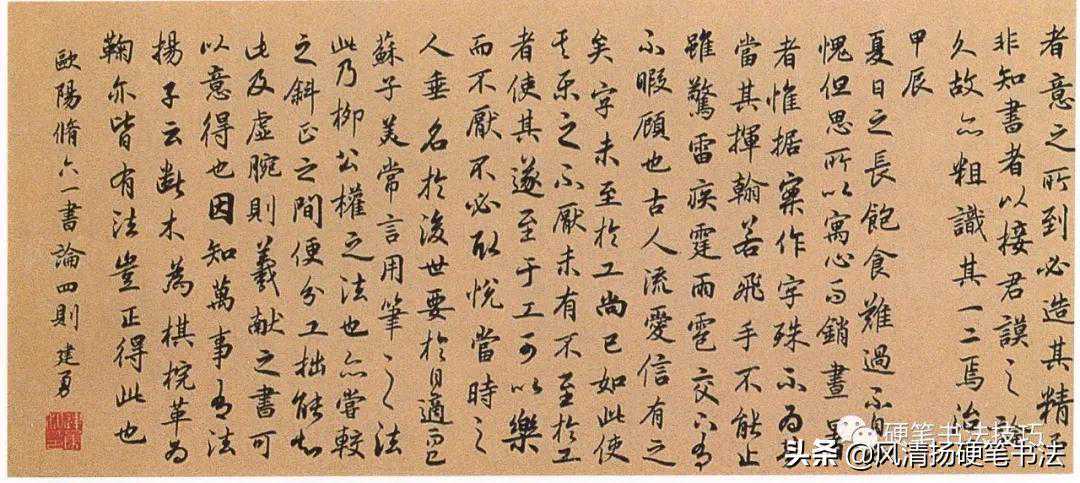 者意之所到必造其精予
非知書者以接君謨之論
久故亦粗識其一二焉治
甲辰
夏日之長飽食難過不自
愧但思所以寓心而銷晝暑
者惟据案作字殊不為勞
當其揮翰若飛手不能止
雖驚雷疾霆雨雹交下有
不暇顧也古人流愛信有之
矣字未至於工尚已如此使
其樂之不厭未有不至於工
者使其遂至于工可以樂
而不厭不必取悅當時之
人垂名於後世要於自適而已
蘇子美常言用筆之法
此乃柳公權之法也亦嘗較
之斜正之間便分工拙能知
此及虛腕則羲献之書可
以意得也因知萬事有法
揚子云斷木為棋梡革為
鞠亦皆有法豈正得此也
歐陽脩六一書論四則 建勇
硬笔书法技巧
头条 @风清扬硬笔书法